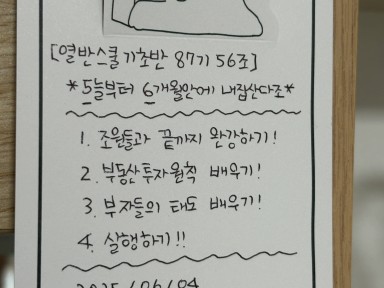 [열반스쿨 기초반 87기 56조]
*5늘부터 6개월안에 내집산다조*
1. 조원들과 끝까지 완강하기!
2. 부동산투자원칙 배우기!
3. 부자들의 태도 배우기!
4. 실행하기!!
2025/06/04